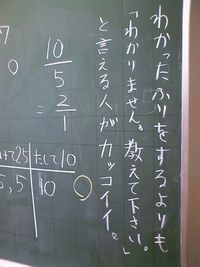 わかったふりをするよりも
「わかりません。教えて下さい。」
と言える人がカッコイイ。
7
0
10
5
=
2
1
たして10
5,5
10
0